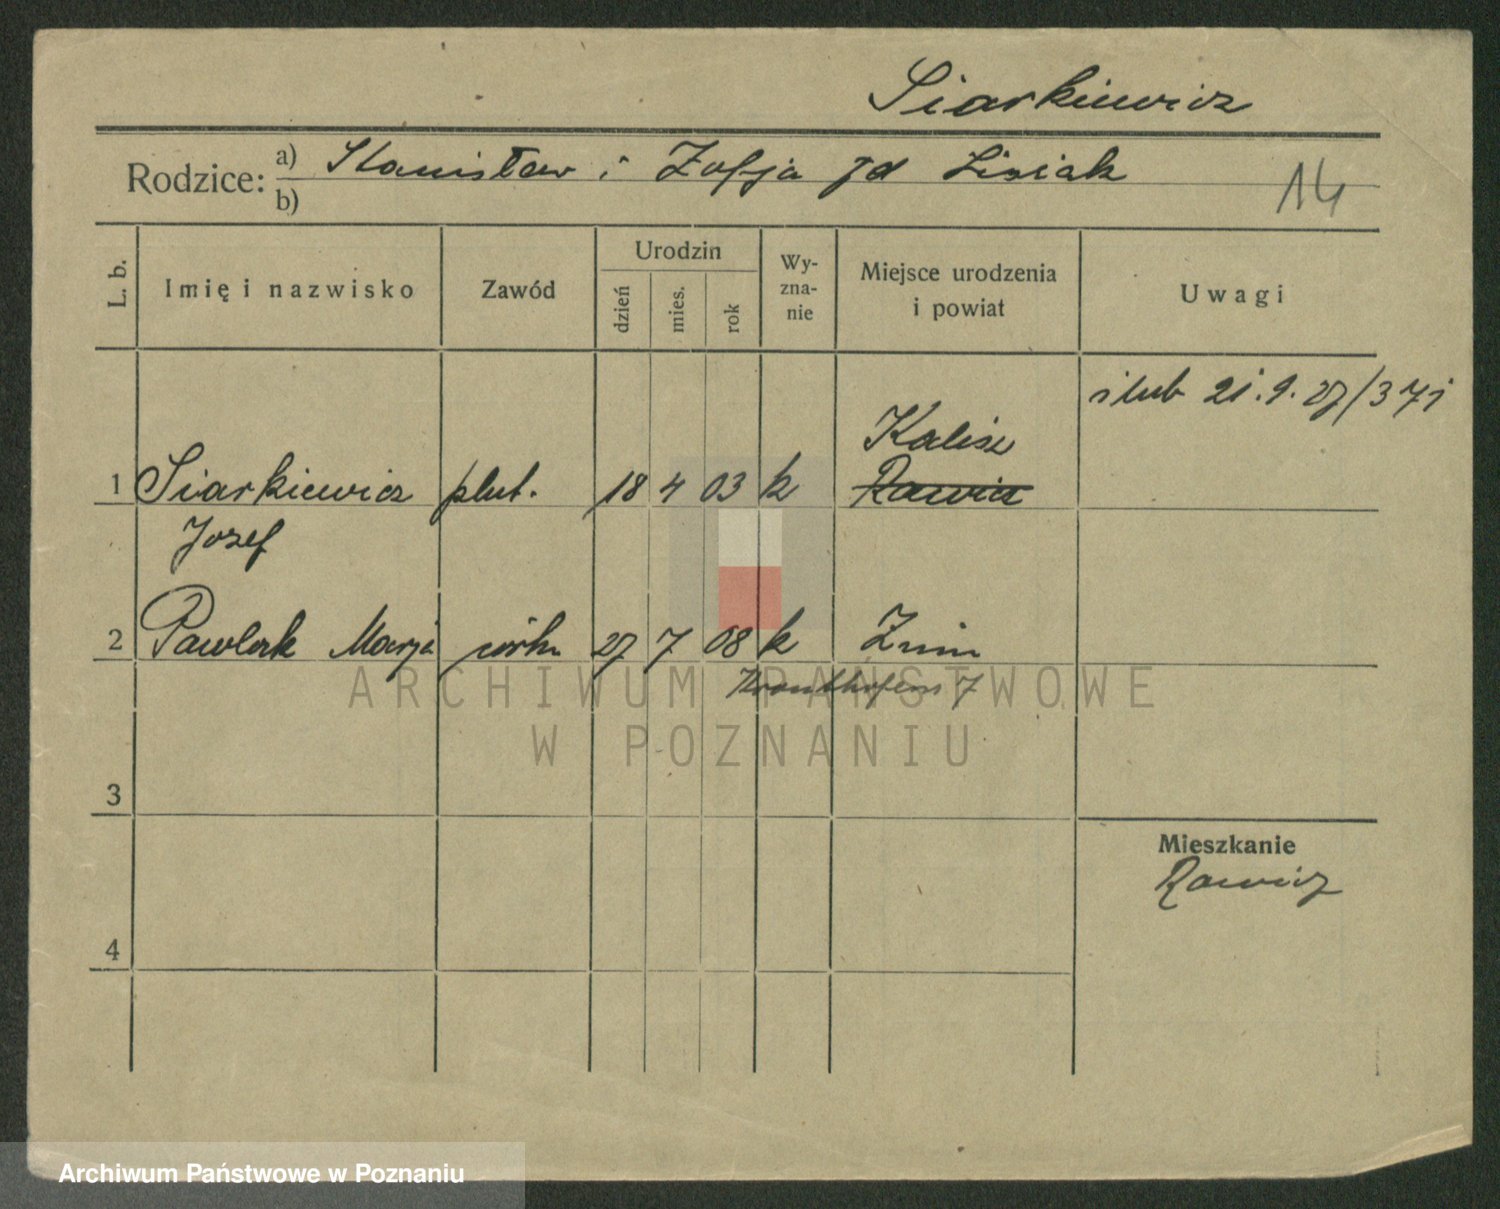 Siarkiewicz
Rodzice: a) Stanisław i Zofja zd Lisiak
b)
14
L. b.
Imię i nazwisko
Zawód
Urodzin
dzień
mies.
rok
Wy-
zna-
nie
Miejsce urodzenia
i powiat
Uwagi
ślub 21.9.27/371
Kalisz
1 Siarkiewicz plut. 18 4 03 k Rawicz
Józef
2 Pawlak Marja córka 27 7 08 k Żnin
7
3
Mieszkanie
Rawicz
4
ARCHIWUM PAŃSTWOWE
W POZNANIU
Archiwum Państwowe w Poznaniu